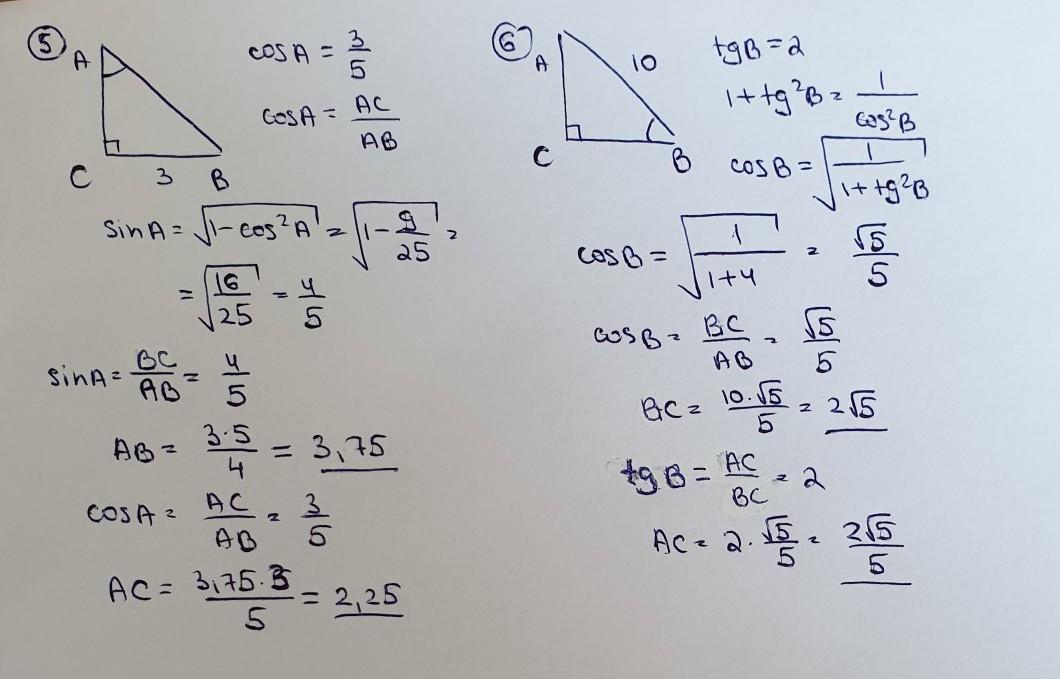 5
A
C 3 B
cosA = 3/5
cosA = AC/AB
sinA = √(1-cos²A) = √(1-9/25) =
= √(16/25) = 4/5
sinA = BC/AB = 4/5
AB = 3·5/4 = 3,75
cosA = AC/AB = 3/5
AC = 3,75·3/5 = 2,25
6
A
10
C B
tgB = 2
1+tg²B = 1/cos²B
cosB = √(1/(1+tg²B))
cosB = √(1/(1+4)) = √5/5
cosB = BC/AB = √5/5
BC = 10·√5/5 = 2√5
tgB = AC/BC = 2
AC = 2·√5/5 = 2√5/5